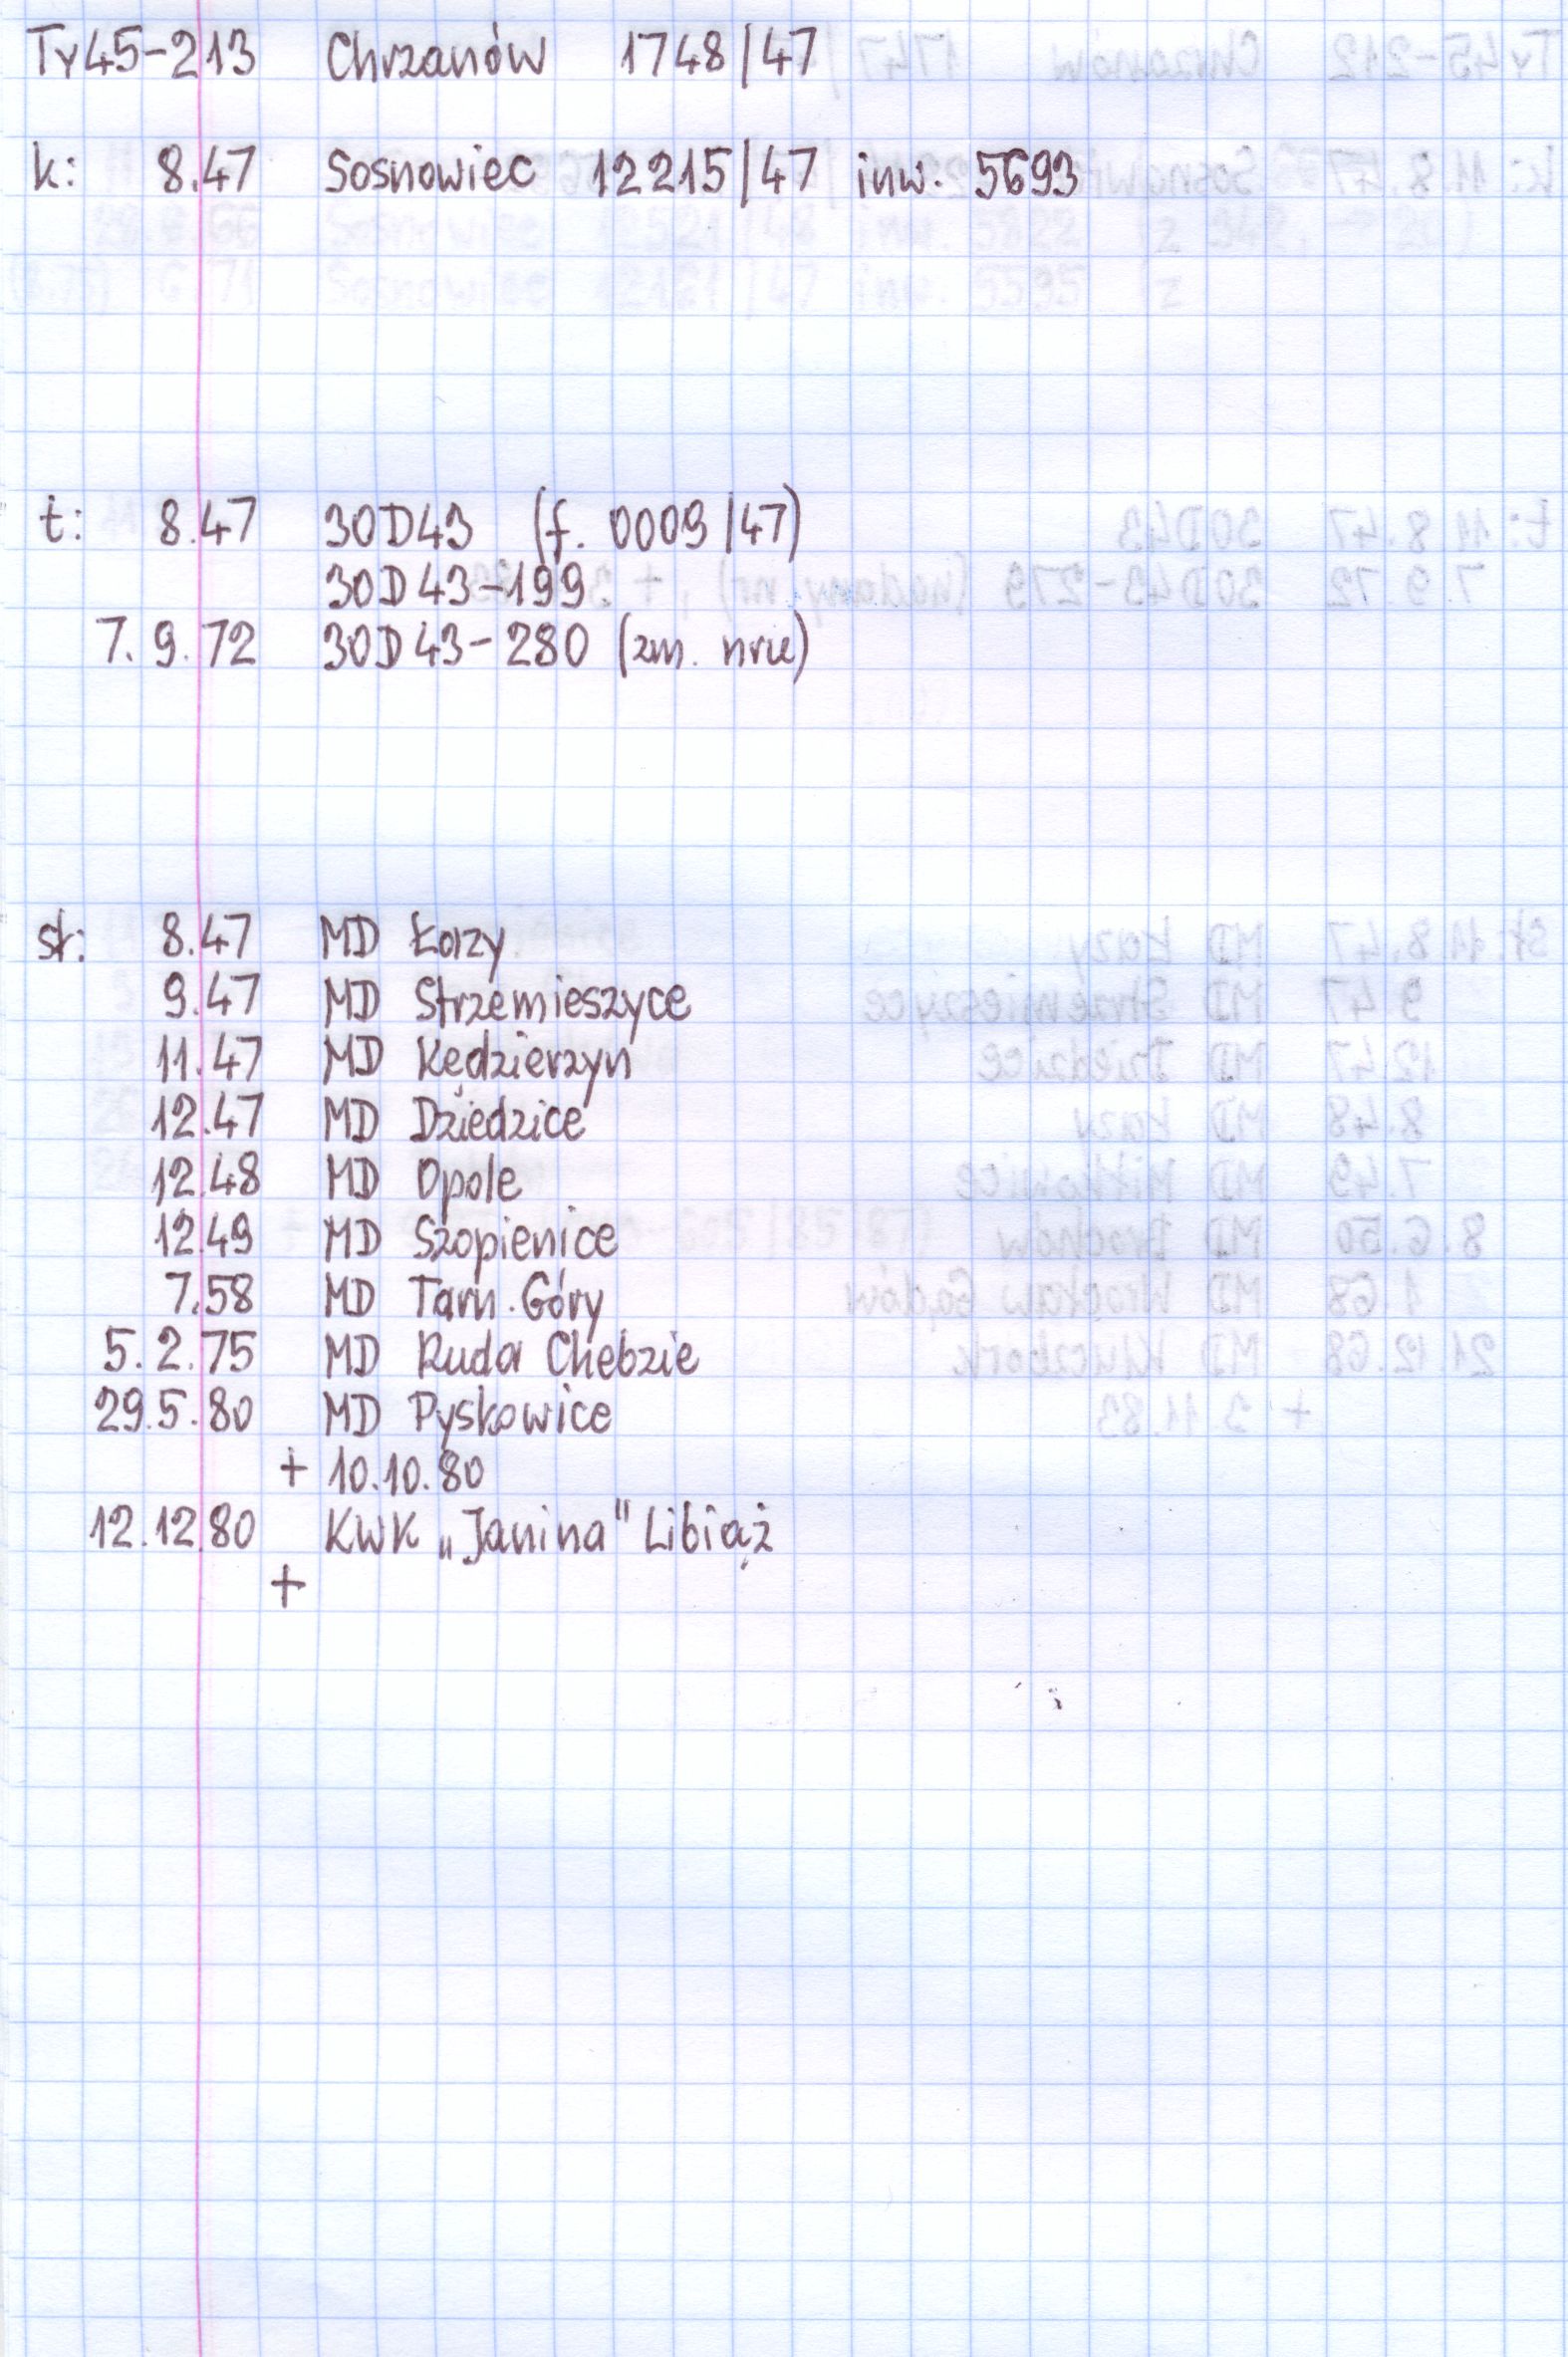 Ty45-213 Chrzanów 1748/47
k: 8.47 Sosnowiec 12215/47 inw. 5693
t: 8.47 30D43 (f. 0009/47)
30D43-199
7.9.72 30D43-280 (zm. nru)
st: 8.47 MD Łazy
9.47 MD Strzemieszyce
11.47 MD Kędzierzyn
12.47 MD Dziedzice
12.48 MD Opole
12.49 MD Szopienice
7.58 MD Tarn. Góry
5.2.75 MD Ruda Chebzie
29.5.80 MD Pyskowice
+ 10.10.80
12.12.80 KWK „Janina" Libiąż
+